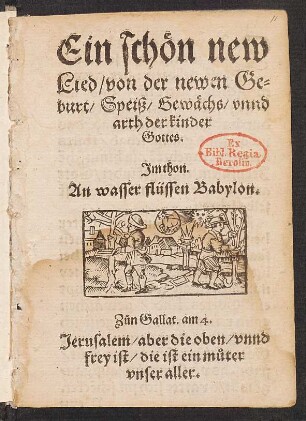 11
Ein schön new
Lied/von der newen Ge-
burt/ Speiß/ Gewächs/ vnnd
arth der kinder
Gottes.
Ex
Bibl. Regia
Berolin.
Im thon.
An wasser flüssen Babylon.
Zůn Gallat. am 4.
Jerusalem/aber die oben/vnnd
frey ist/ die ist ein můter
vnser aller.